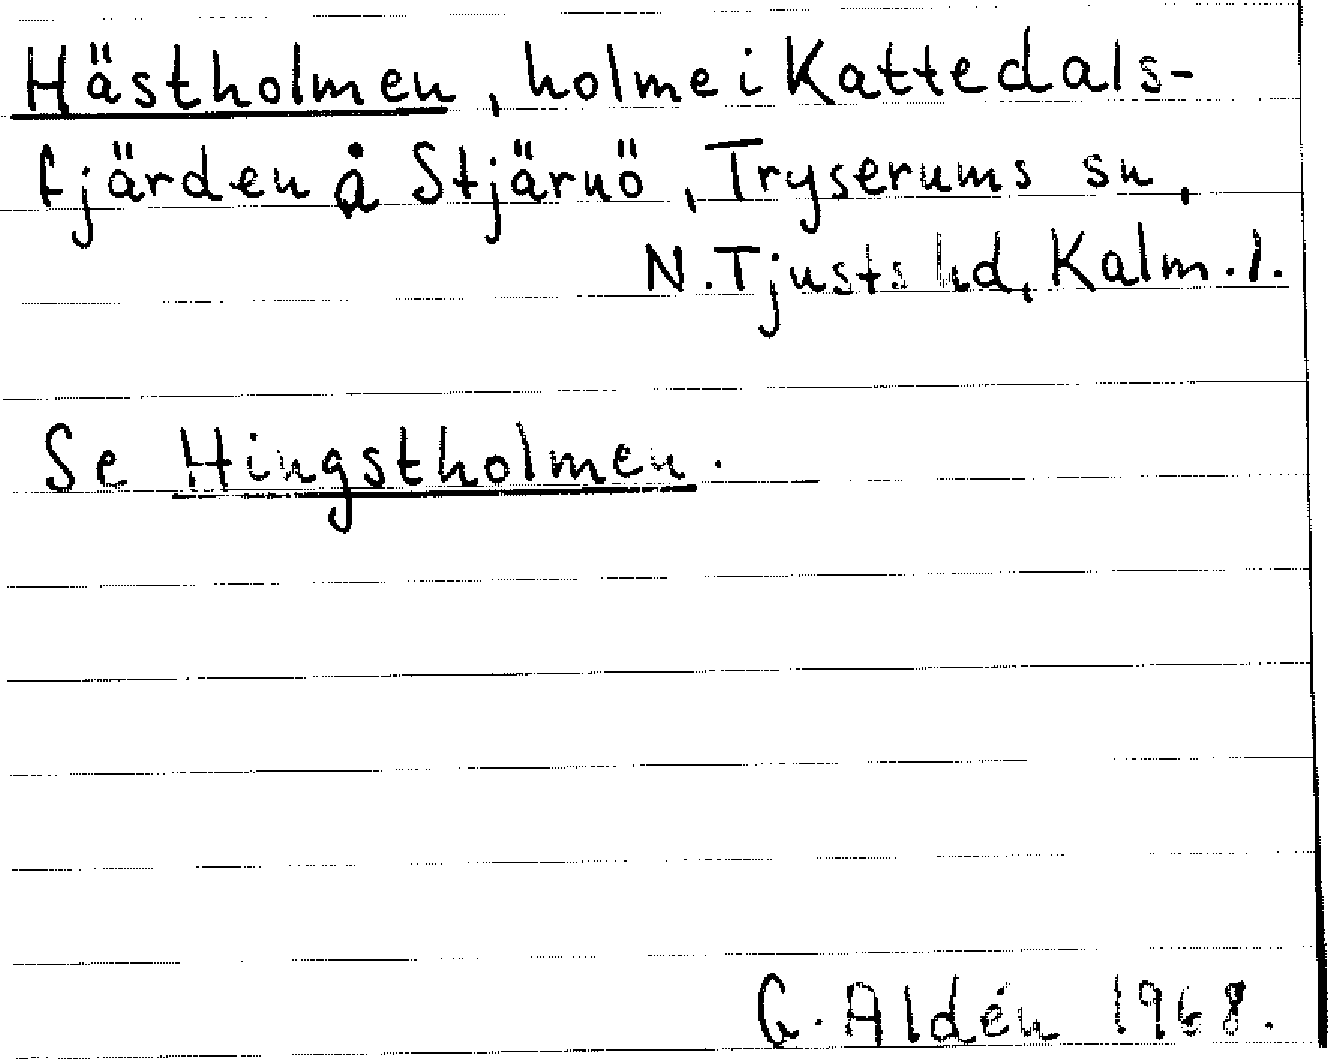 Hästholmen, holme i Kattedals-
fjärden å Stjärnö, Tryserums sn,
N. Tjusts hd, Kalm. l.
Se Hingstholmen.
G. Aldén 1968.